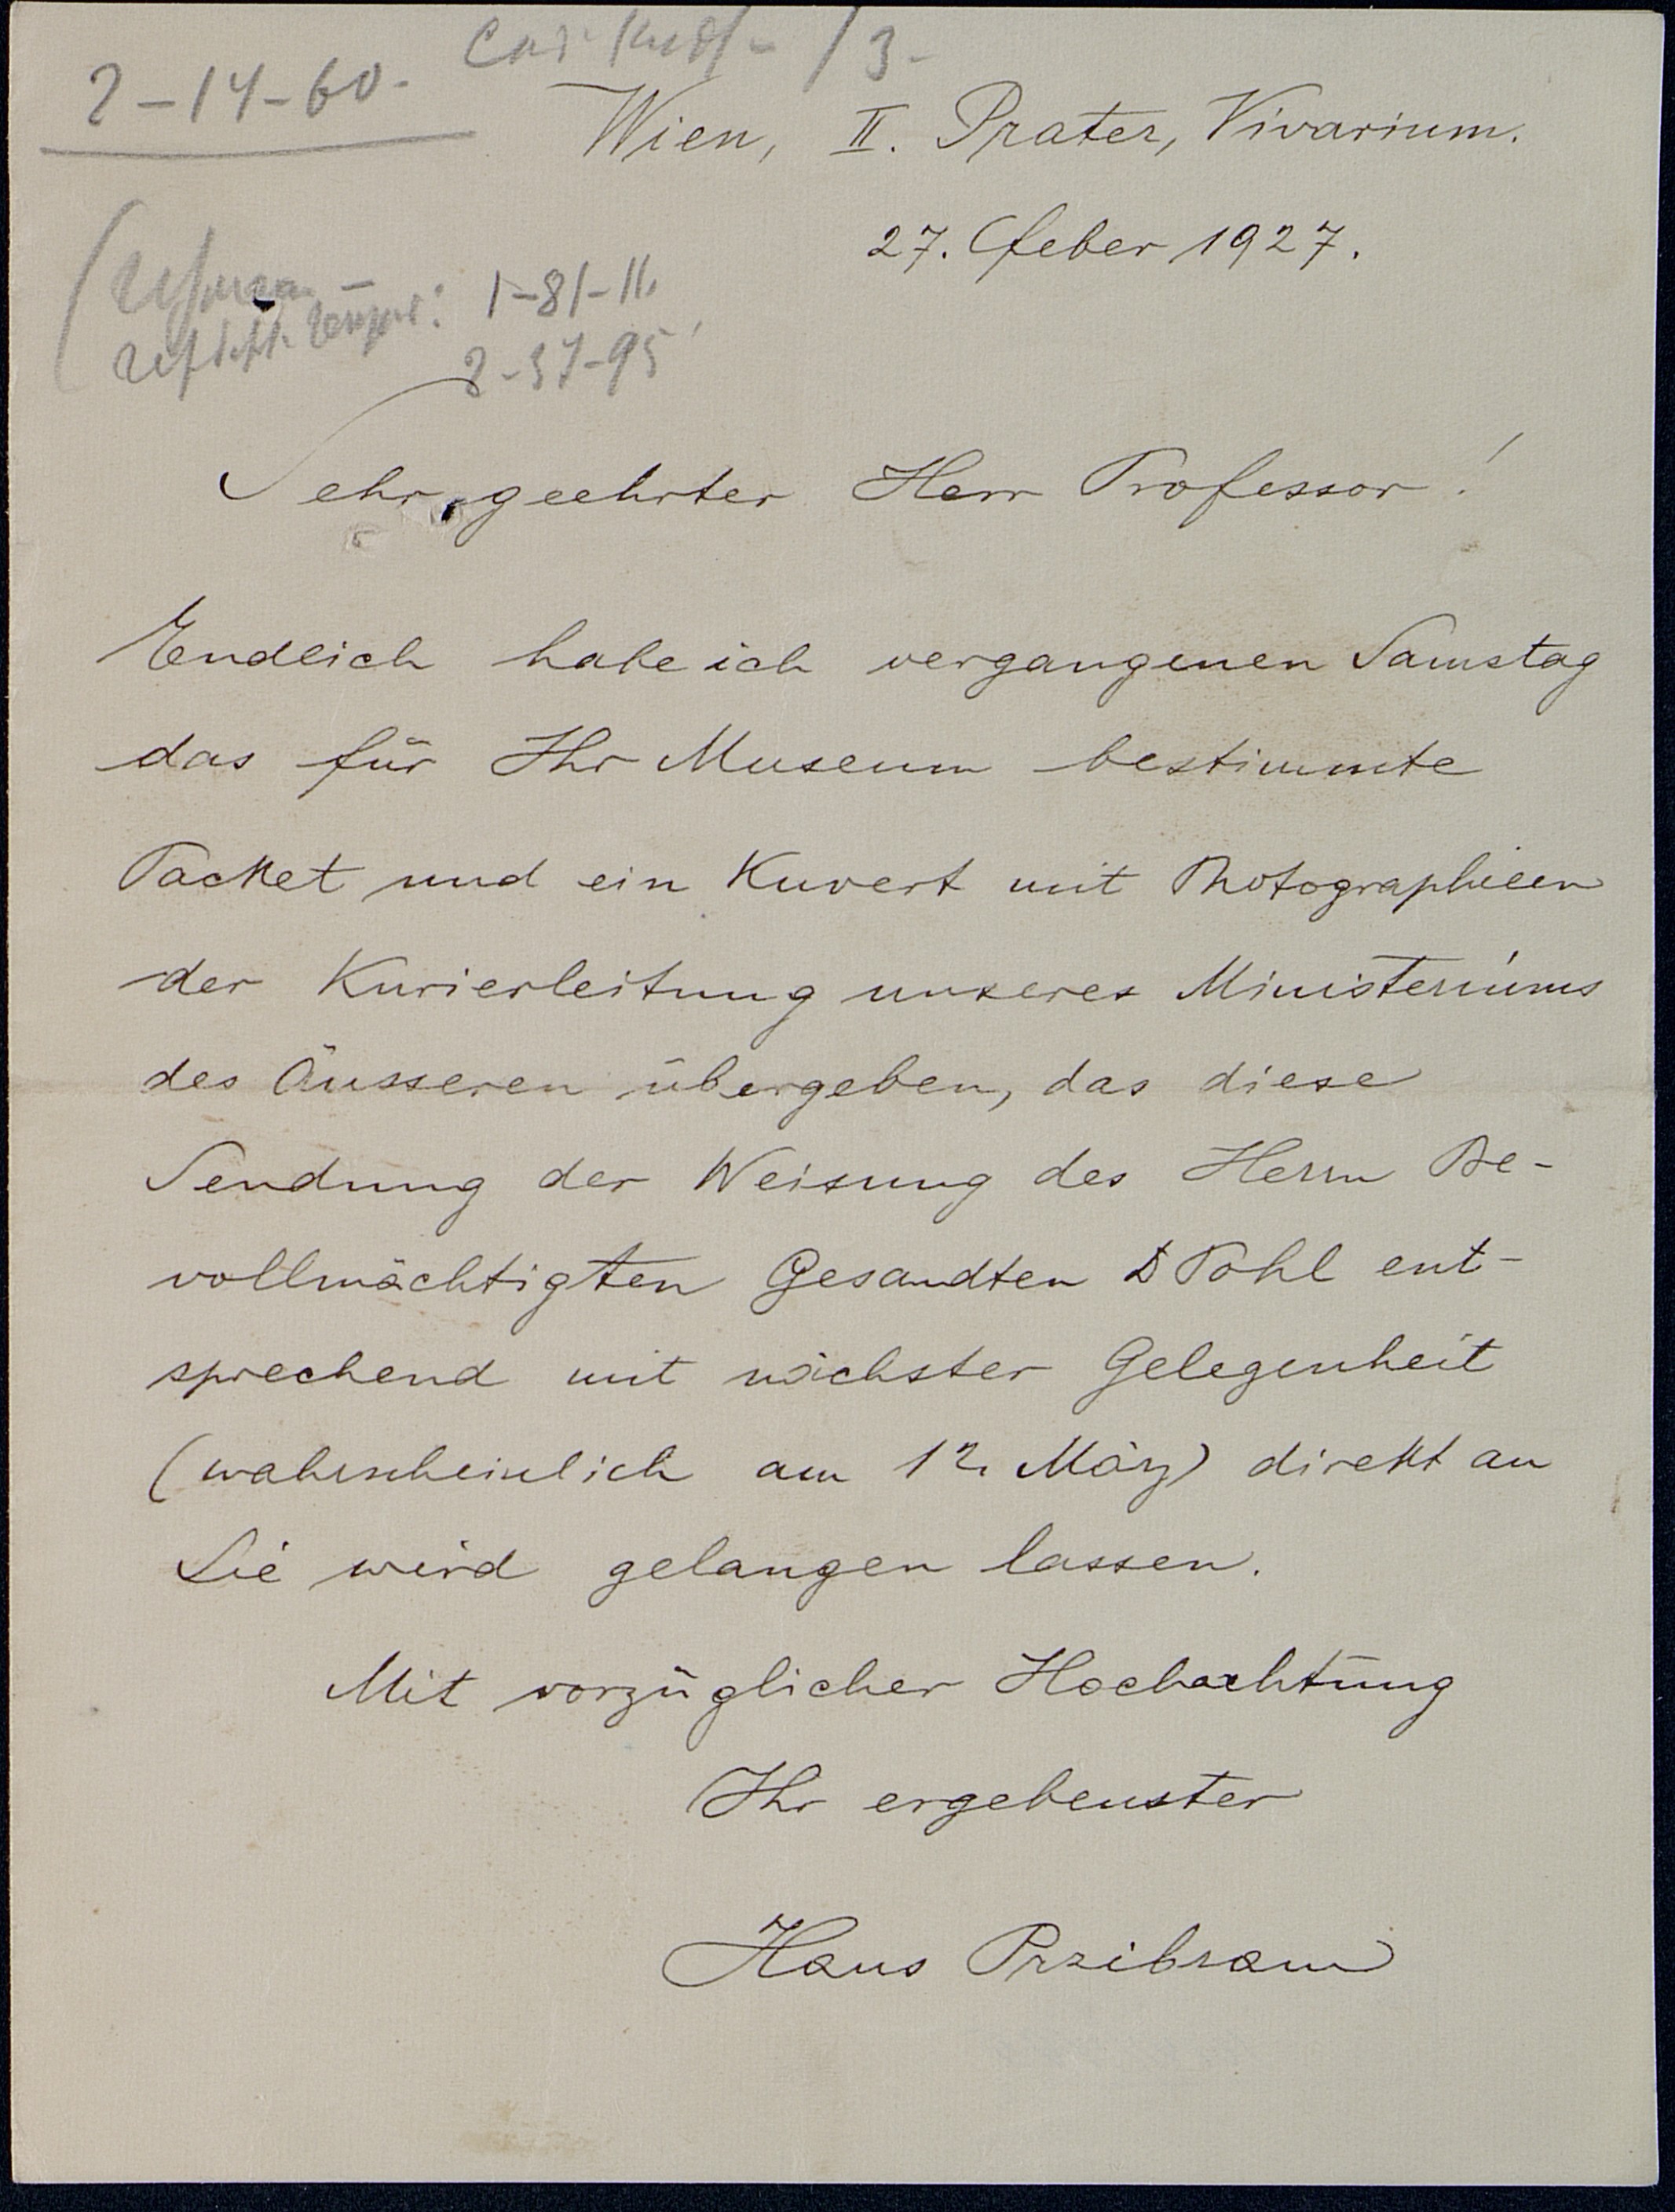 2-14-60.
/3-
Wien, II. Prater, Vivarium.
27. Feber 1927.
1-81-11
2-37-95
Sehr geehrter Herr Professor!
Endlich habe ich vergangenen Samstag
das für Ihr Museum bestimmte
Packet und ein Kuvert mit Photographieen
der Kurierleitung unseres Ministeriums
des Äusseren übergeben, das diese
Sendung der Weisung des Herrn Be-
vollmächtigten Gesandten D Pohl ent-
sprechend mit nächster Gelegenheit
(wahrscheinlich am 12. März) direkt an
Sie wird gelangen lassen.
Mit vorzüglicher Hochachtung
Ihr ergebenster
Hans Przibram